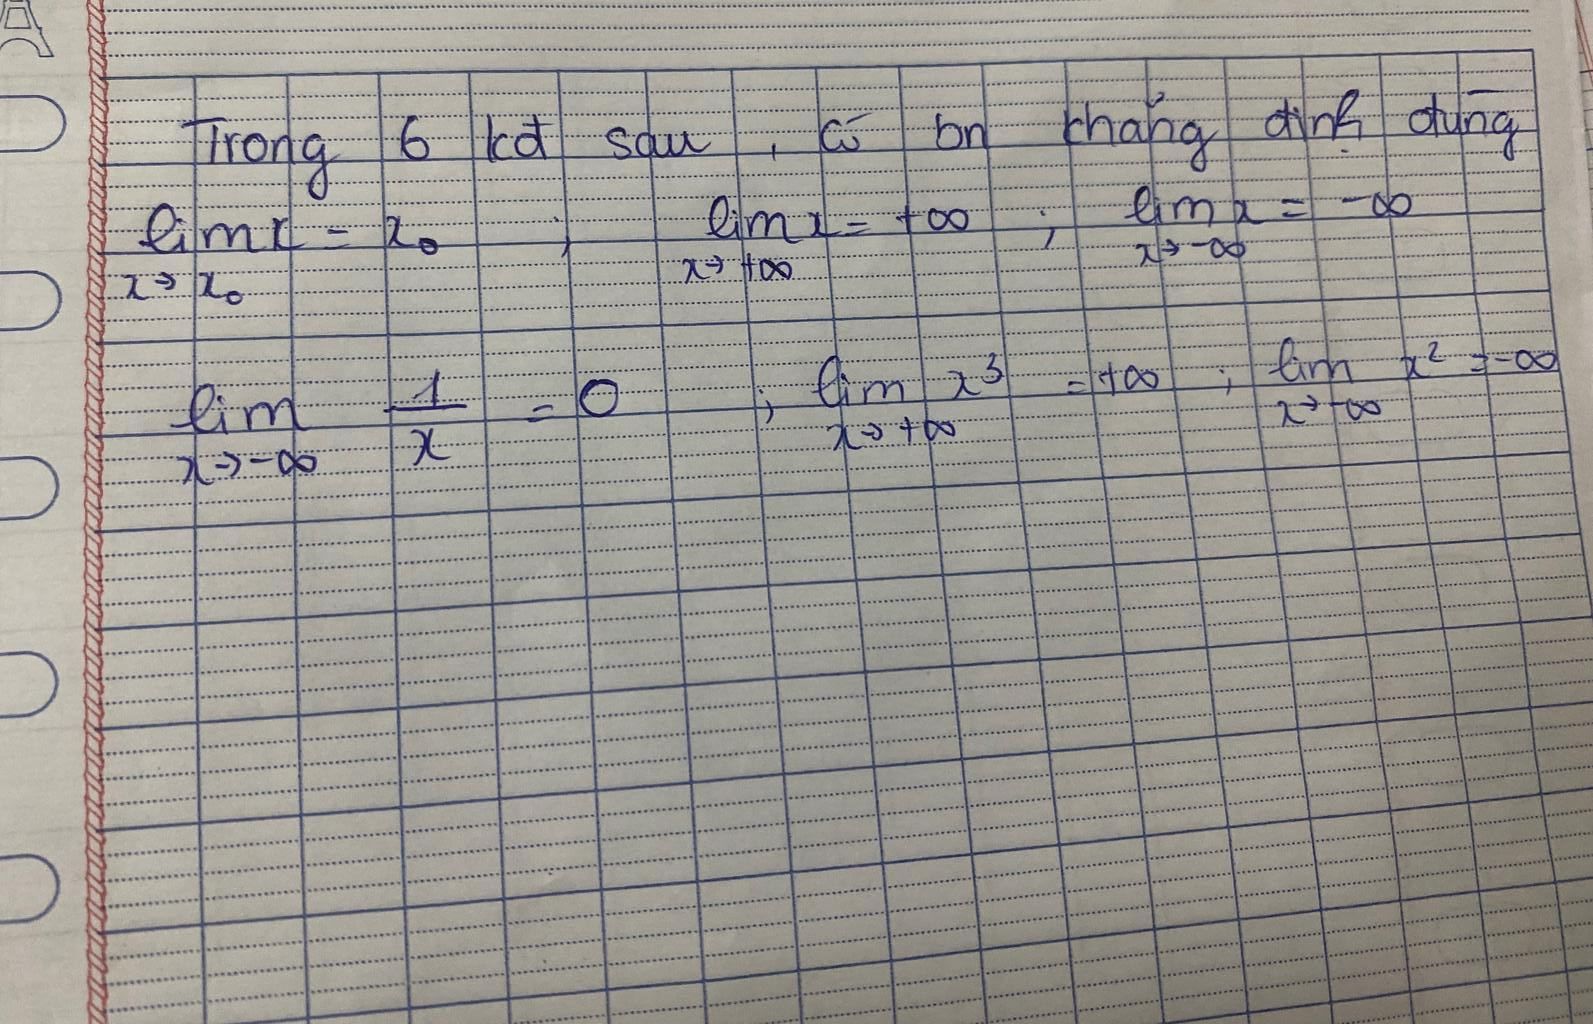 Trong 6 kđ sau, có bn khẳng định đúng
lim x = x₀ ; lim x = +∞ ; lim x = -∞
x→x₀ x→+∞ x→-∞
lim 1/x = 0 ; lim x³ = +∞ ; lim x² = -∞
x→-∞ x→+∞ x→-∞